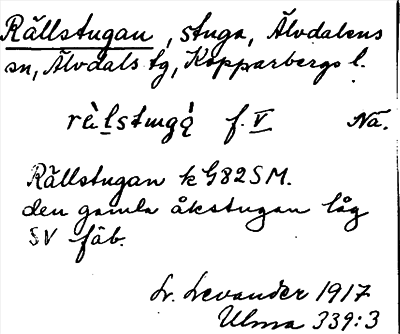 Rällstugan, stuga, Älvdalens
sn, Älvdals tg, Kopparbergs l.
f. V Na.
Rällstugan k G82SM.
den gamla åkstugan låg
SV fäb.
Lr. Levander 1917
Ulma 339:3